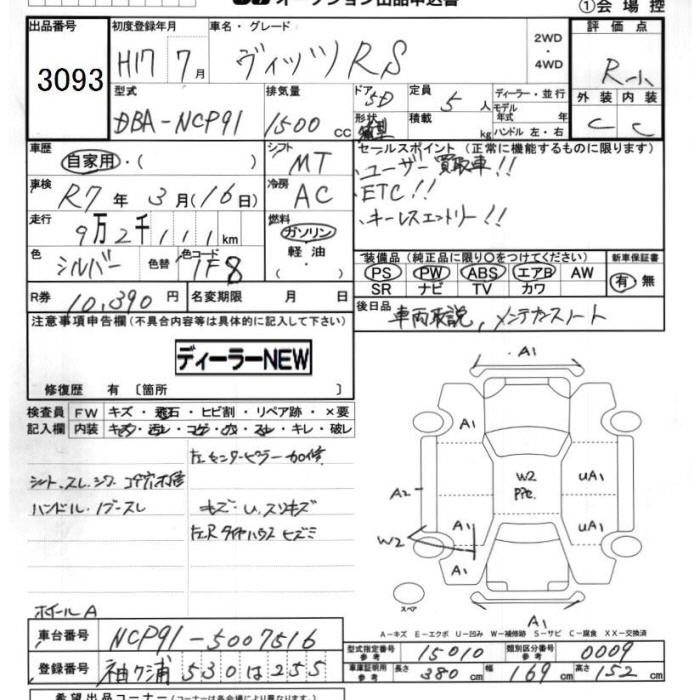 オークション出品申込書
①会場控
出品番号 初度登録年月 車名・グレード 評価点
3093 H17 7月 ヴィッツ RS 2WD・4WD R-小
型式 排気量 ドア 5D 定員 5人 ディーラー・並行 外装 内装
DBA-NCP91 1500cc 形状 積載 kg モデル年式 年 ハンドル 左・右 C C
車歴 自家用・( ) シフト MT セールスポイント(正常に機能するものに限ります)
ユーザー買取車!!
車検 R7年3月(16日) 冷房 AC ETC!!
走行 9万2千111km 燃料 ガソリン・軽油・( ) キーレスエントリー!!
色 シルバー 色替 色コード 1F8
装備品(純正品に限り○をつけてください) 新車保証書
PS PW ABS エアB AW 有・無
SR ナビ TV カワ
R券 10,390円 名変期限 月 日 後日品 車両取説、メンテナンスノート
注意事項申告欄(不具合内容等は具体的に記入して下さい)
ディーラーNEW
修復歴 有〔箇所 〕
検査員記入欄 FW キズ・飛石・ヒビ割・リペア跡・×要
内装 キズ・汚レ・コゲ・穴・スレ・キレ・破レ
左センターピラー加修
シート、スレ、シワ、コゲ穴補修
ハンドル・ノブスレ キズ・U、スリキズ
左Rタイヤハウス ヒズミ
ホイールA
A1
A1
A2
W2
A1
A1
W2
P7C.
UA1
UA1
A1
スペア
A-キズ E-エクボ U-凹み W-補修跡 S-サビ C-腐食 XX-交換済
車台番号 NCP91-5007516
型式指定番号 参考 15010 類別区分番号 参考 0009
登録番号 袖ケ浦 530 は 255
車庫証明用 参考 長さ 380cm 幅 169cm 高さ 152cm
希望出品コーナー(コーナーは各会場により異なります)